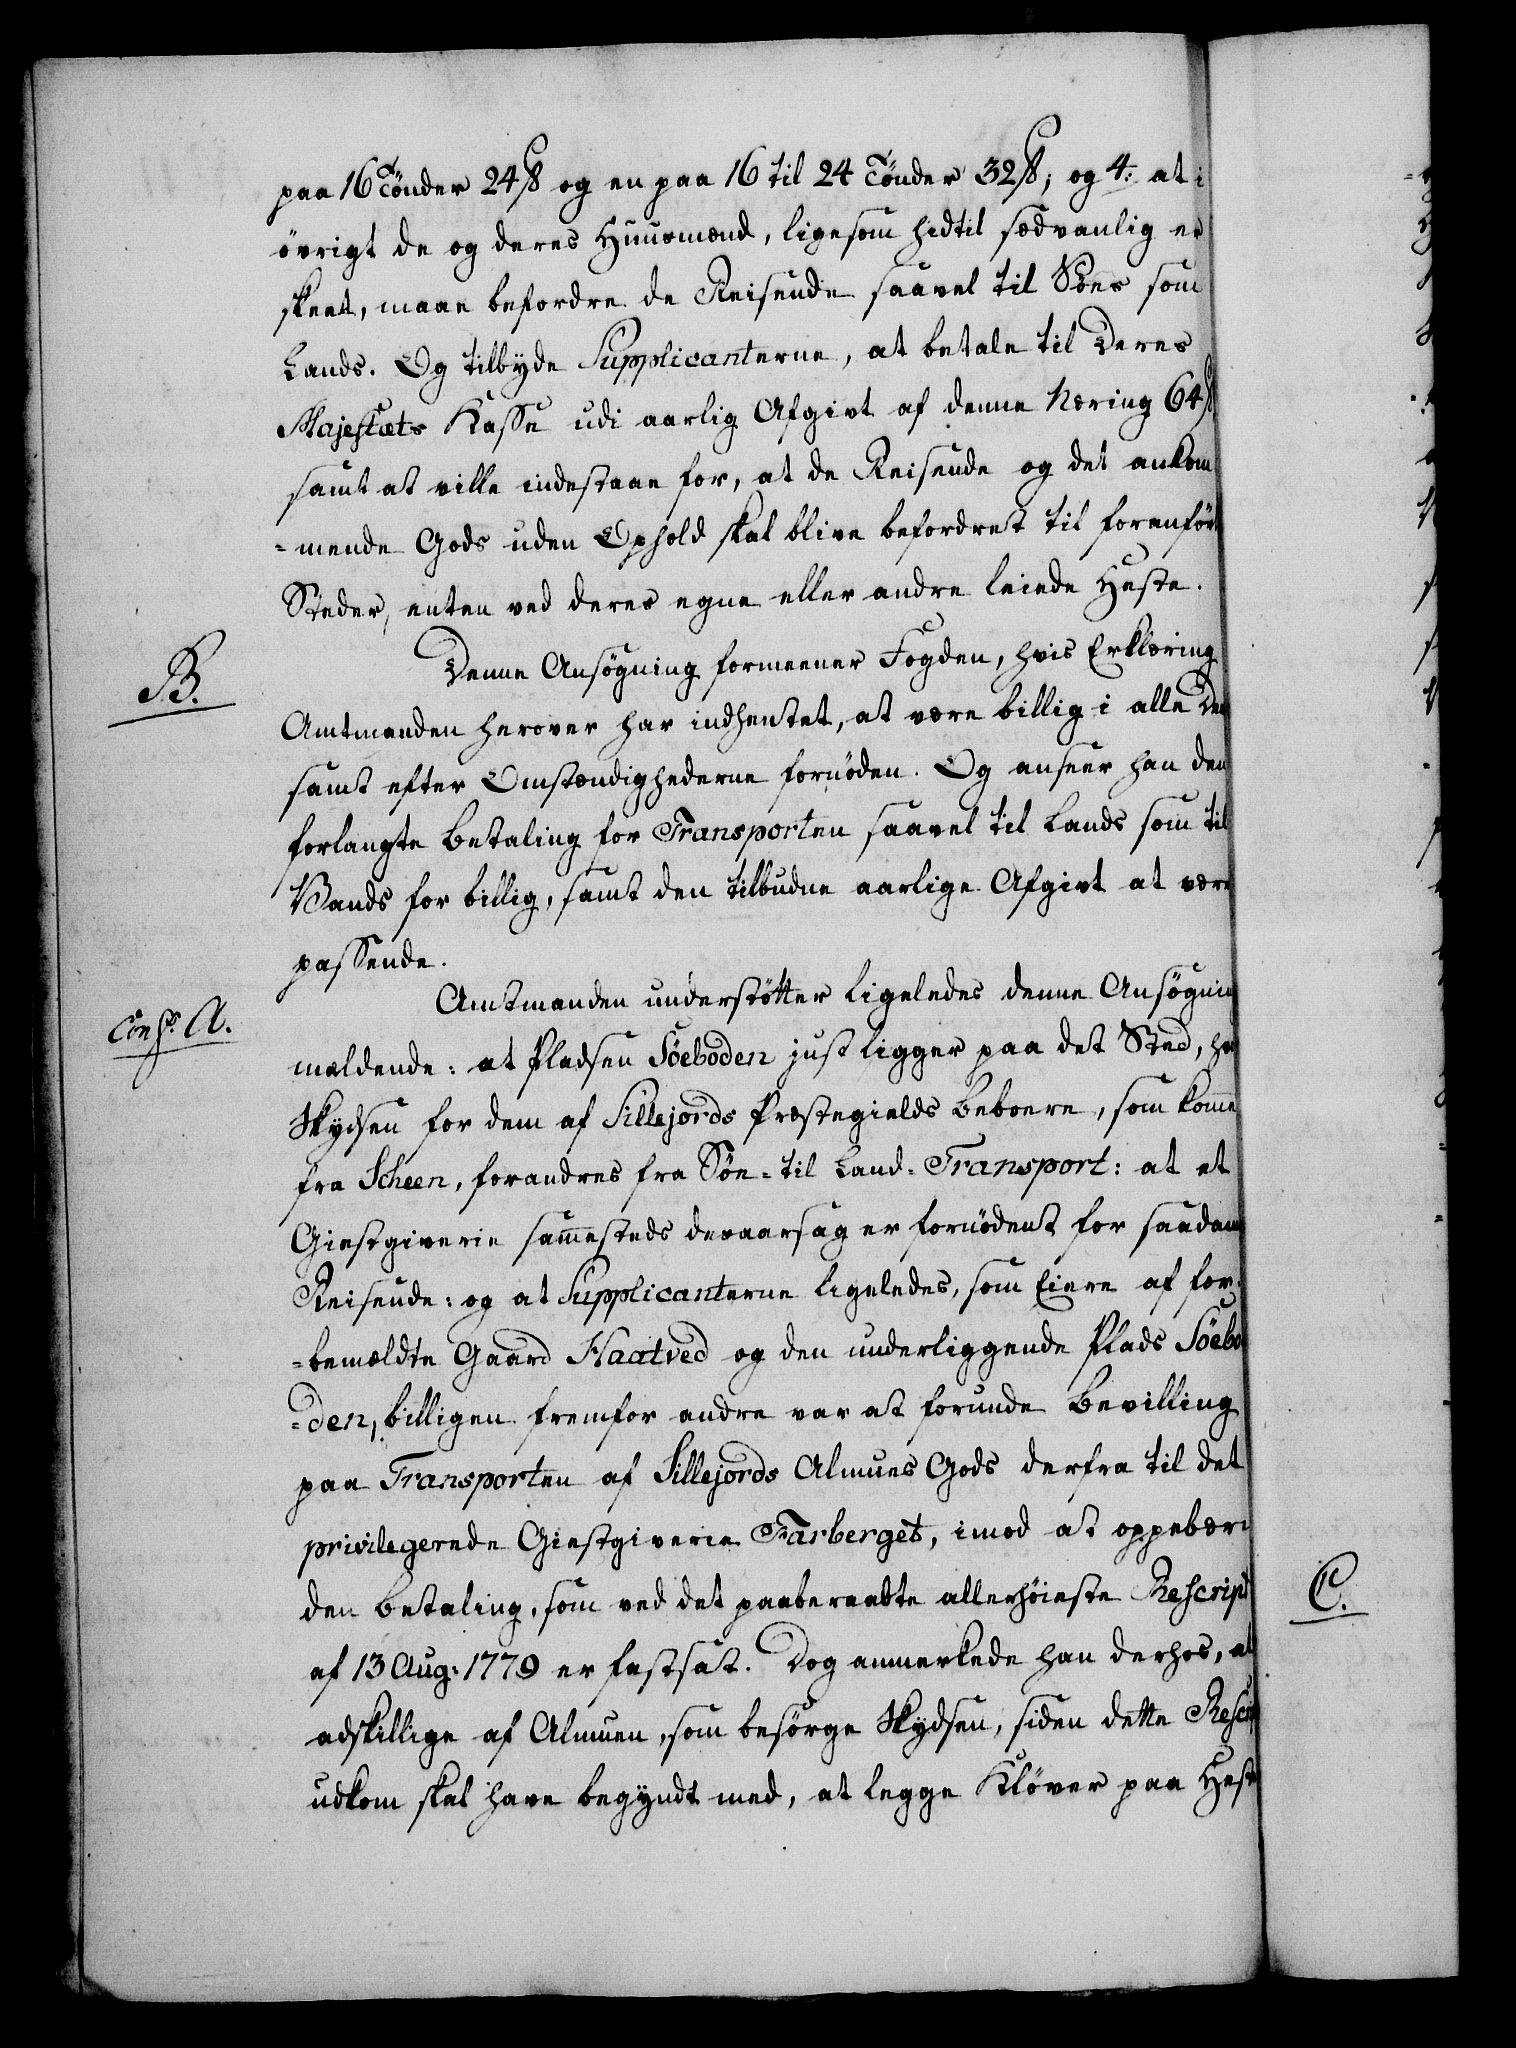 paa 16 Tönder 24 ß og en paa 16 til 24 Tönder 32 ß; og 4: at i
övrigt de og deres Huusmænd, ligesom hidtil sædvanlig er
skeet, maae befordre de Reisende saavel til Söes som
Lands. Og tilbyde Supplicanterne, at betale til Deres
Majestæts Kasse udi aarlig Afgivt af denne Næring 64 ß
samt at ville indestaae for, at de Reisende og det ankom
=mende Gods uden Ophold skal blive befordret til foranför
Steder, enten ved deres egne eller andre leiede Heste.
B.
Denne Ansögning formeener Fogden, hvis Erklæring
Amtmanden herover har indhentet, at være billig i alle De
samt efter Omstændighederne fornöden. Og anseer han den
forlangte Betaling for Transporten saavel til Lands som til
Vands for billig, samt den tilbudne aarlige Afgivt at være
passende.
Conf: A.
Amtmanden understötter ligeledes denne Ansögning
meldende: at Pladsen Söeboden just ligger paa det Sted, hv
Skydsen for dem af Sillejords Præstegields Beboere, som komme
fra Scheen, forandres fra Söe= til Land=Transport: at et
Giestgiverie sammesteds desaarsag er fornödent for saadan
Reisende: og at Supplicanterne ligeledes, som Eiere af for=
=bemældte Gaard Haatved og den underliggende Plads Söebo
=den, billigen fremfor andre var at forunde Bevilling
paa Transporten af Sillejords Almues Gods derfra til det
privilegerede Giestgiverie Farberget, imod at oppebære
den Betaling, som ved det paaberaabte allerhöieste Rescript
af 13 Aug: 1779 er fastsat. Dog anmerkede han derhos, at
adskillige af Almuen, som besörge Skydsen, siden dette Rescr
udkom skal have begyndt med, at legge Klöver paa Heste
C.